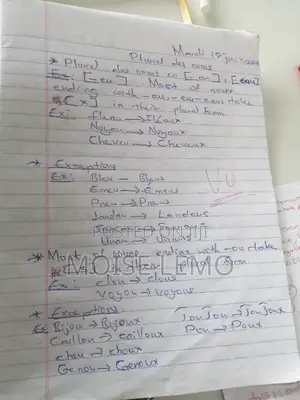 Mardi 18 juin
Pluriel des noms
* Pluriel des noms en [-au], [eau]
Ex: [-eu]. Most of nouns
ending with -au-eu-eau take
[x] in their plural form
Ex: Fleau → Fléaux
Noyau → Noyaux
Cheveu → Cheveux
* Exceptions
Ex: Bleu - Bleus
Emeu → Emeus
Pneu → Pneus
Landau → Landaus
Vu
MOISE LEMO
* Most ending with -ou take
in their plural form.
Ex: Clou → clous
Voyou → voyous
* Exceptions
Ex Bijou → Bijoux JouJou → JouJoux
Caillou → cailloux Pou → Poux
chou → choux
Genou → Genoux